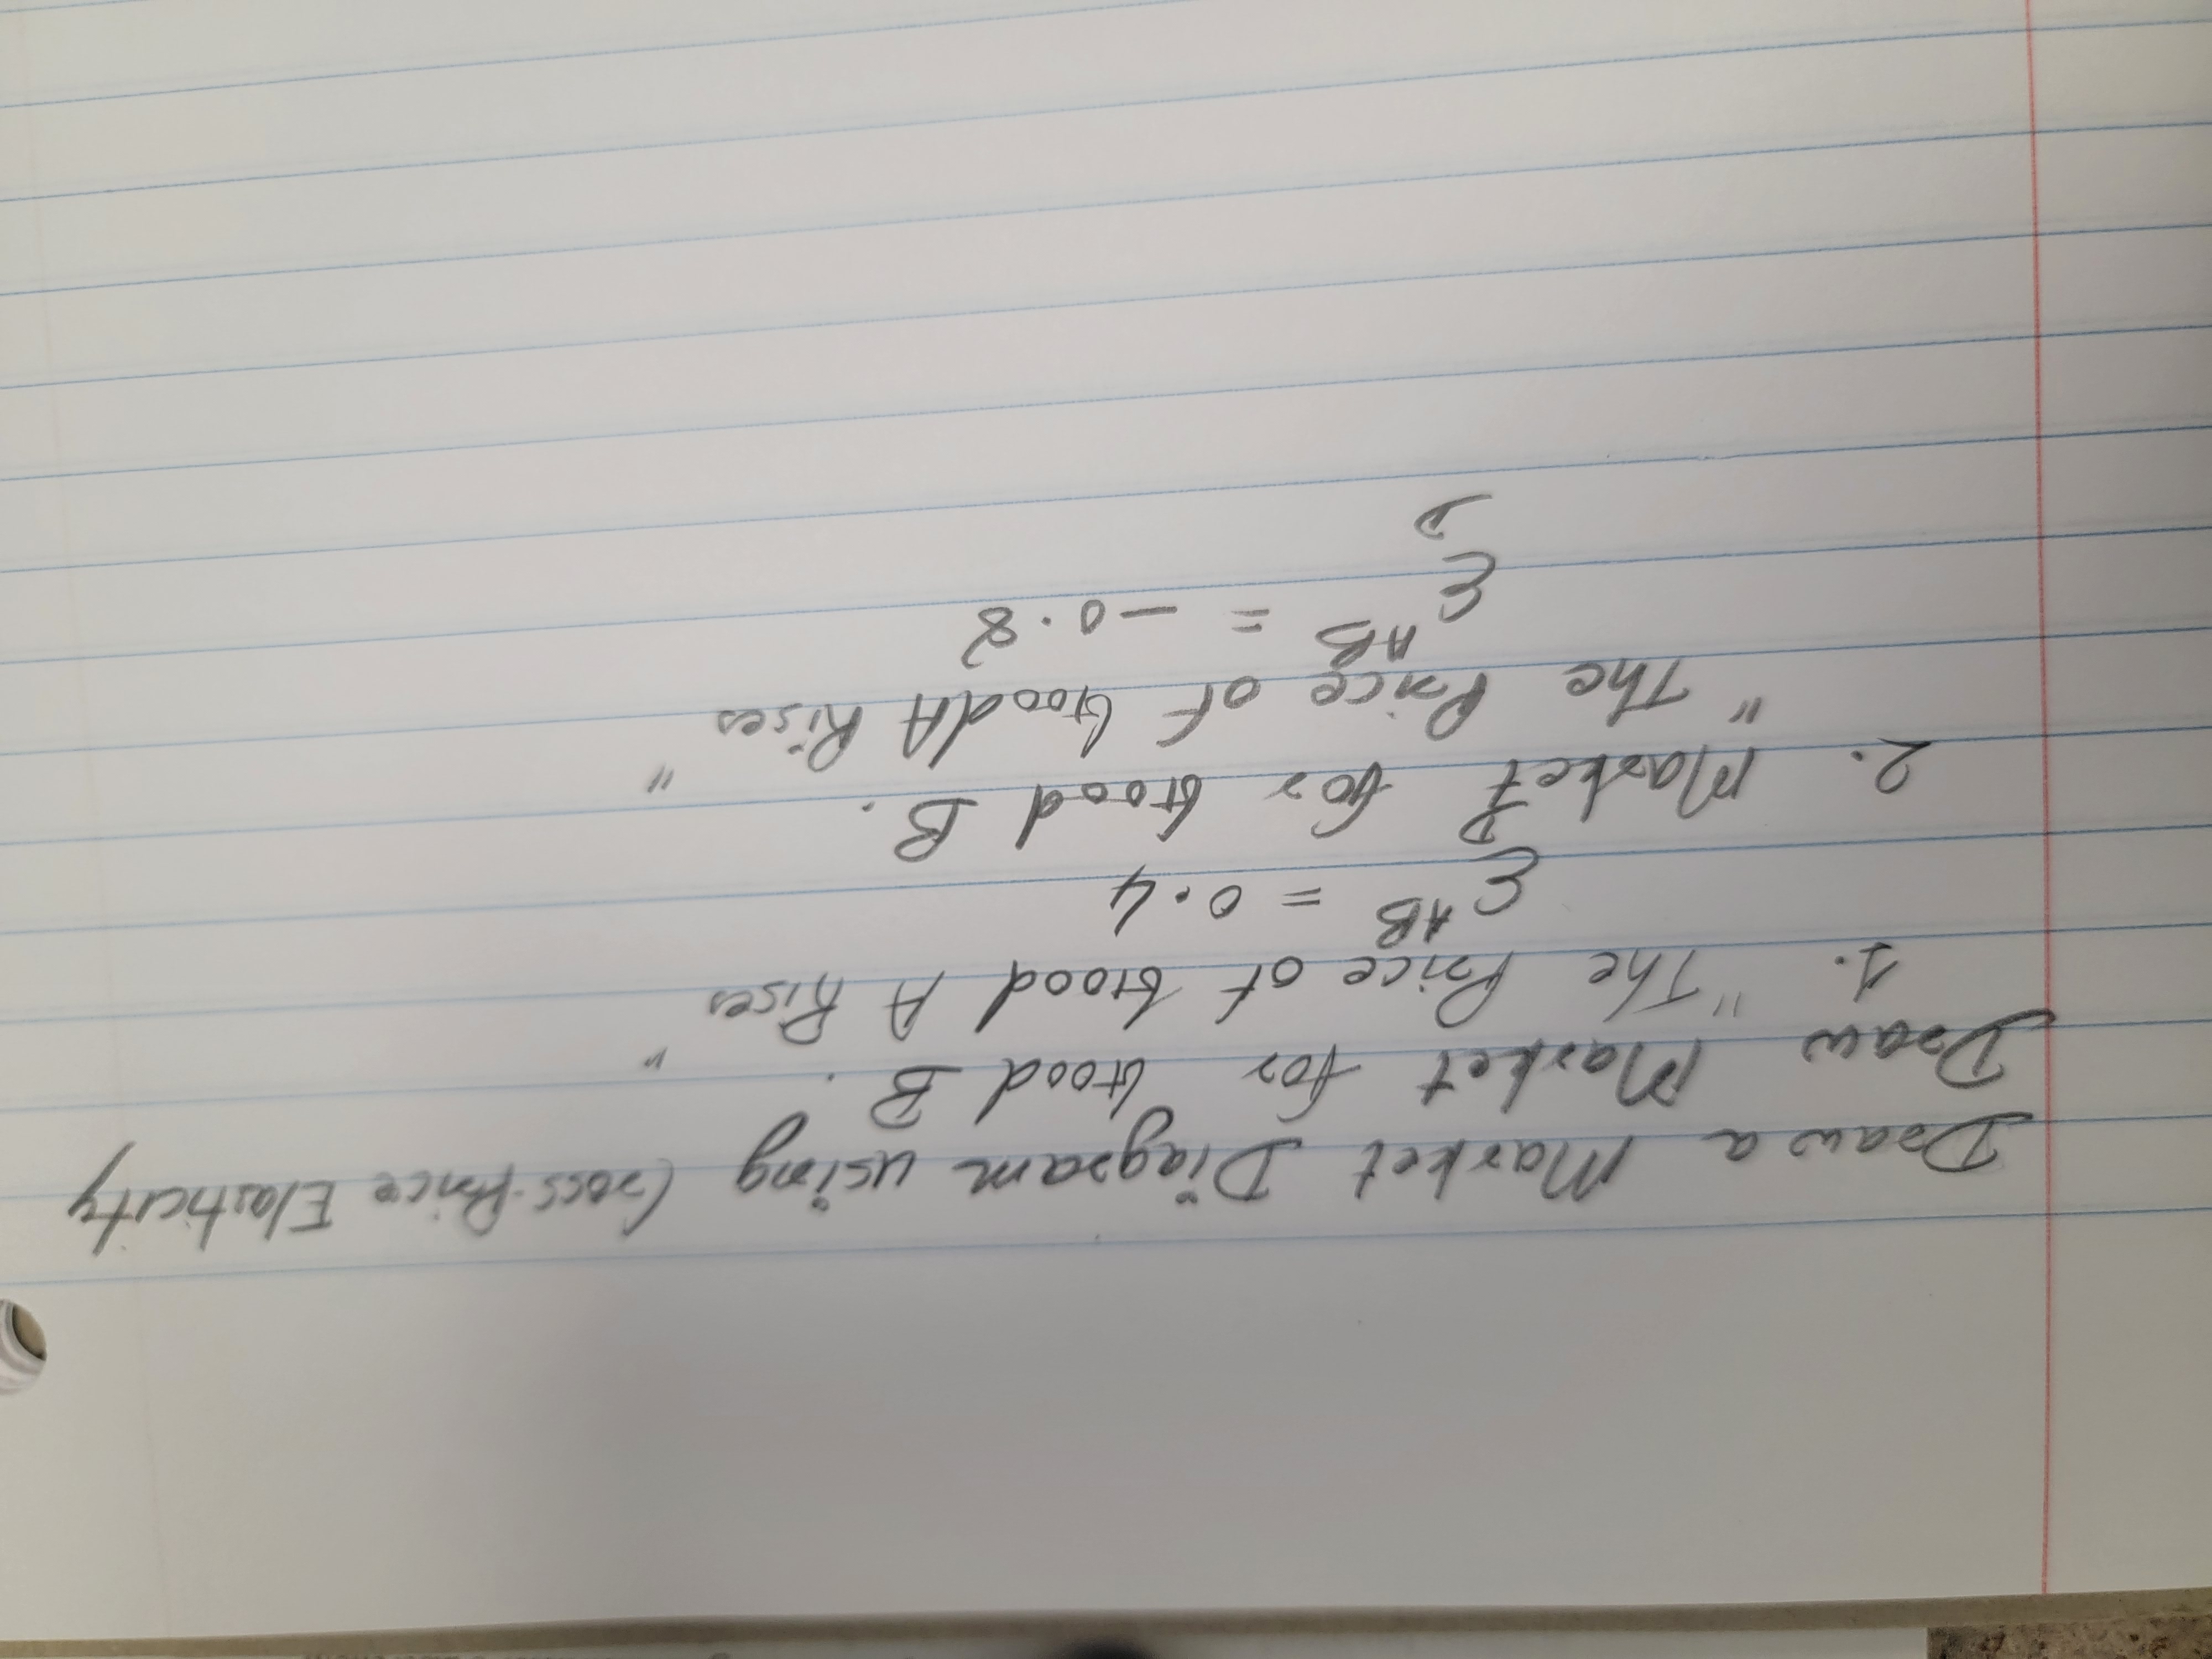 Draw a Market Diagram using Cross-Price Elasticity
Draw Market for Good B.
1. "The Price of Good A Rises"
ε_D^AB = 0.4
2. Market for Good B.
"The Price of Good A Rises"
ε_D^AB = -0.8